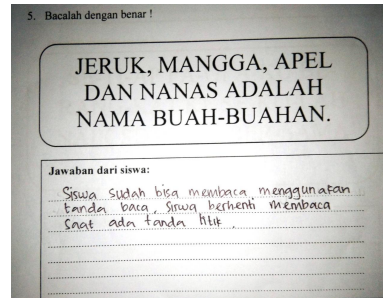 5. Bacalah dengan benar !
JERUK, MANGGA, APEL
DAN NANAS ADALAH
NAMA BUAH-BUAHAN.
Jawaban dari siswa:
Siswa sudah bisa membaca menggunakan
tanda baca, siswa berhenti membaca
saat ada tanda titik.